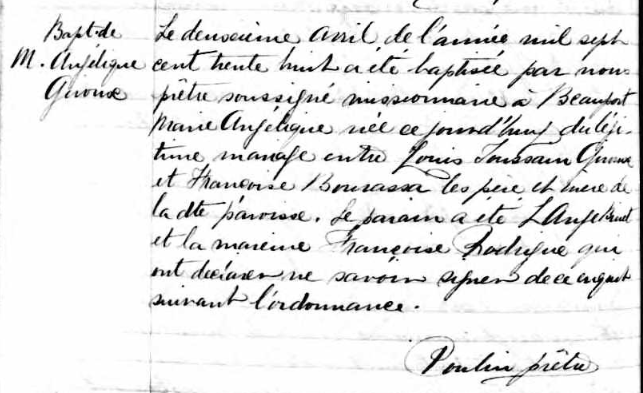 Bapt. de
M. Angélique
Giroux
Le deuxième avril de l'année mil sept
cent trente huit a été baptisée par nous
prêtre soussigné missionnaire à Beauport
Marie Angélique née ce jourd'huy du légi-
time mariage entre Louis Toussain Giroux
et Françoise Bourassa les père et mère de
la dte paroisse. Le parain a été
et la mareine Françoise Rodrigue qui
ont déclarer ne savoir signer de ce enquit
suivant l'ordonnance.
Poulin prêtre